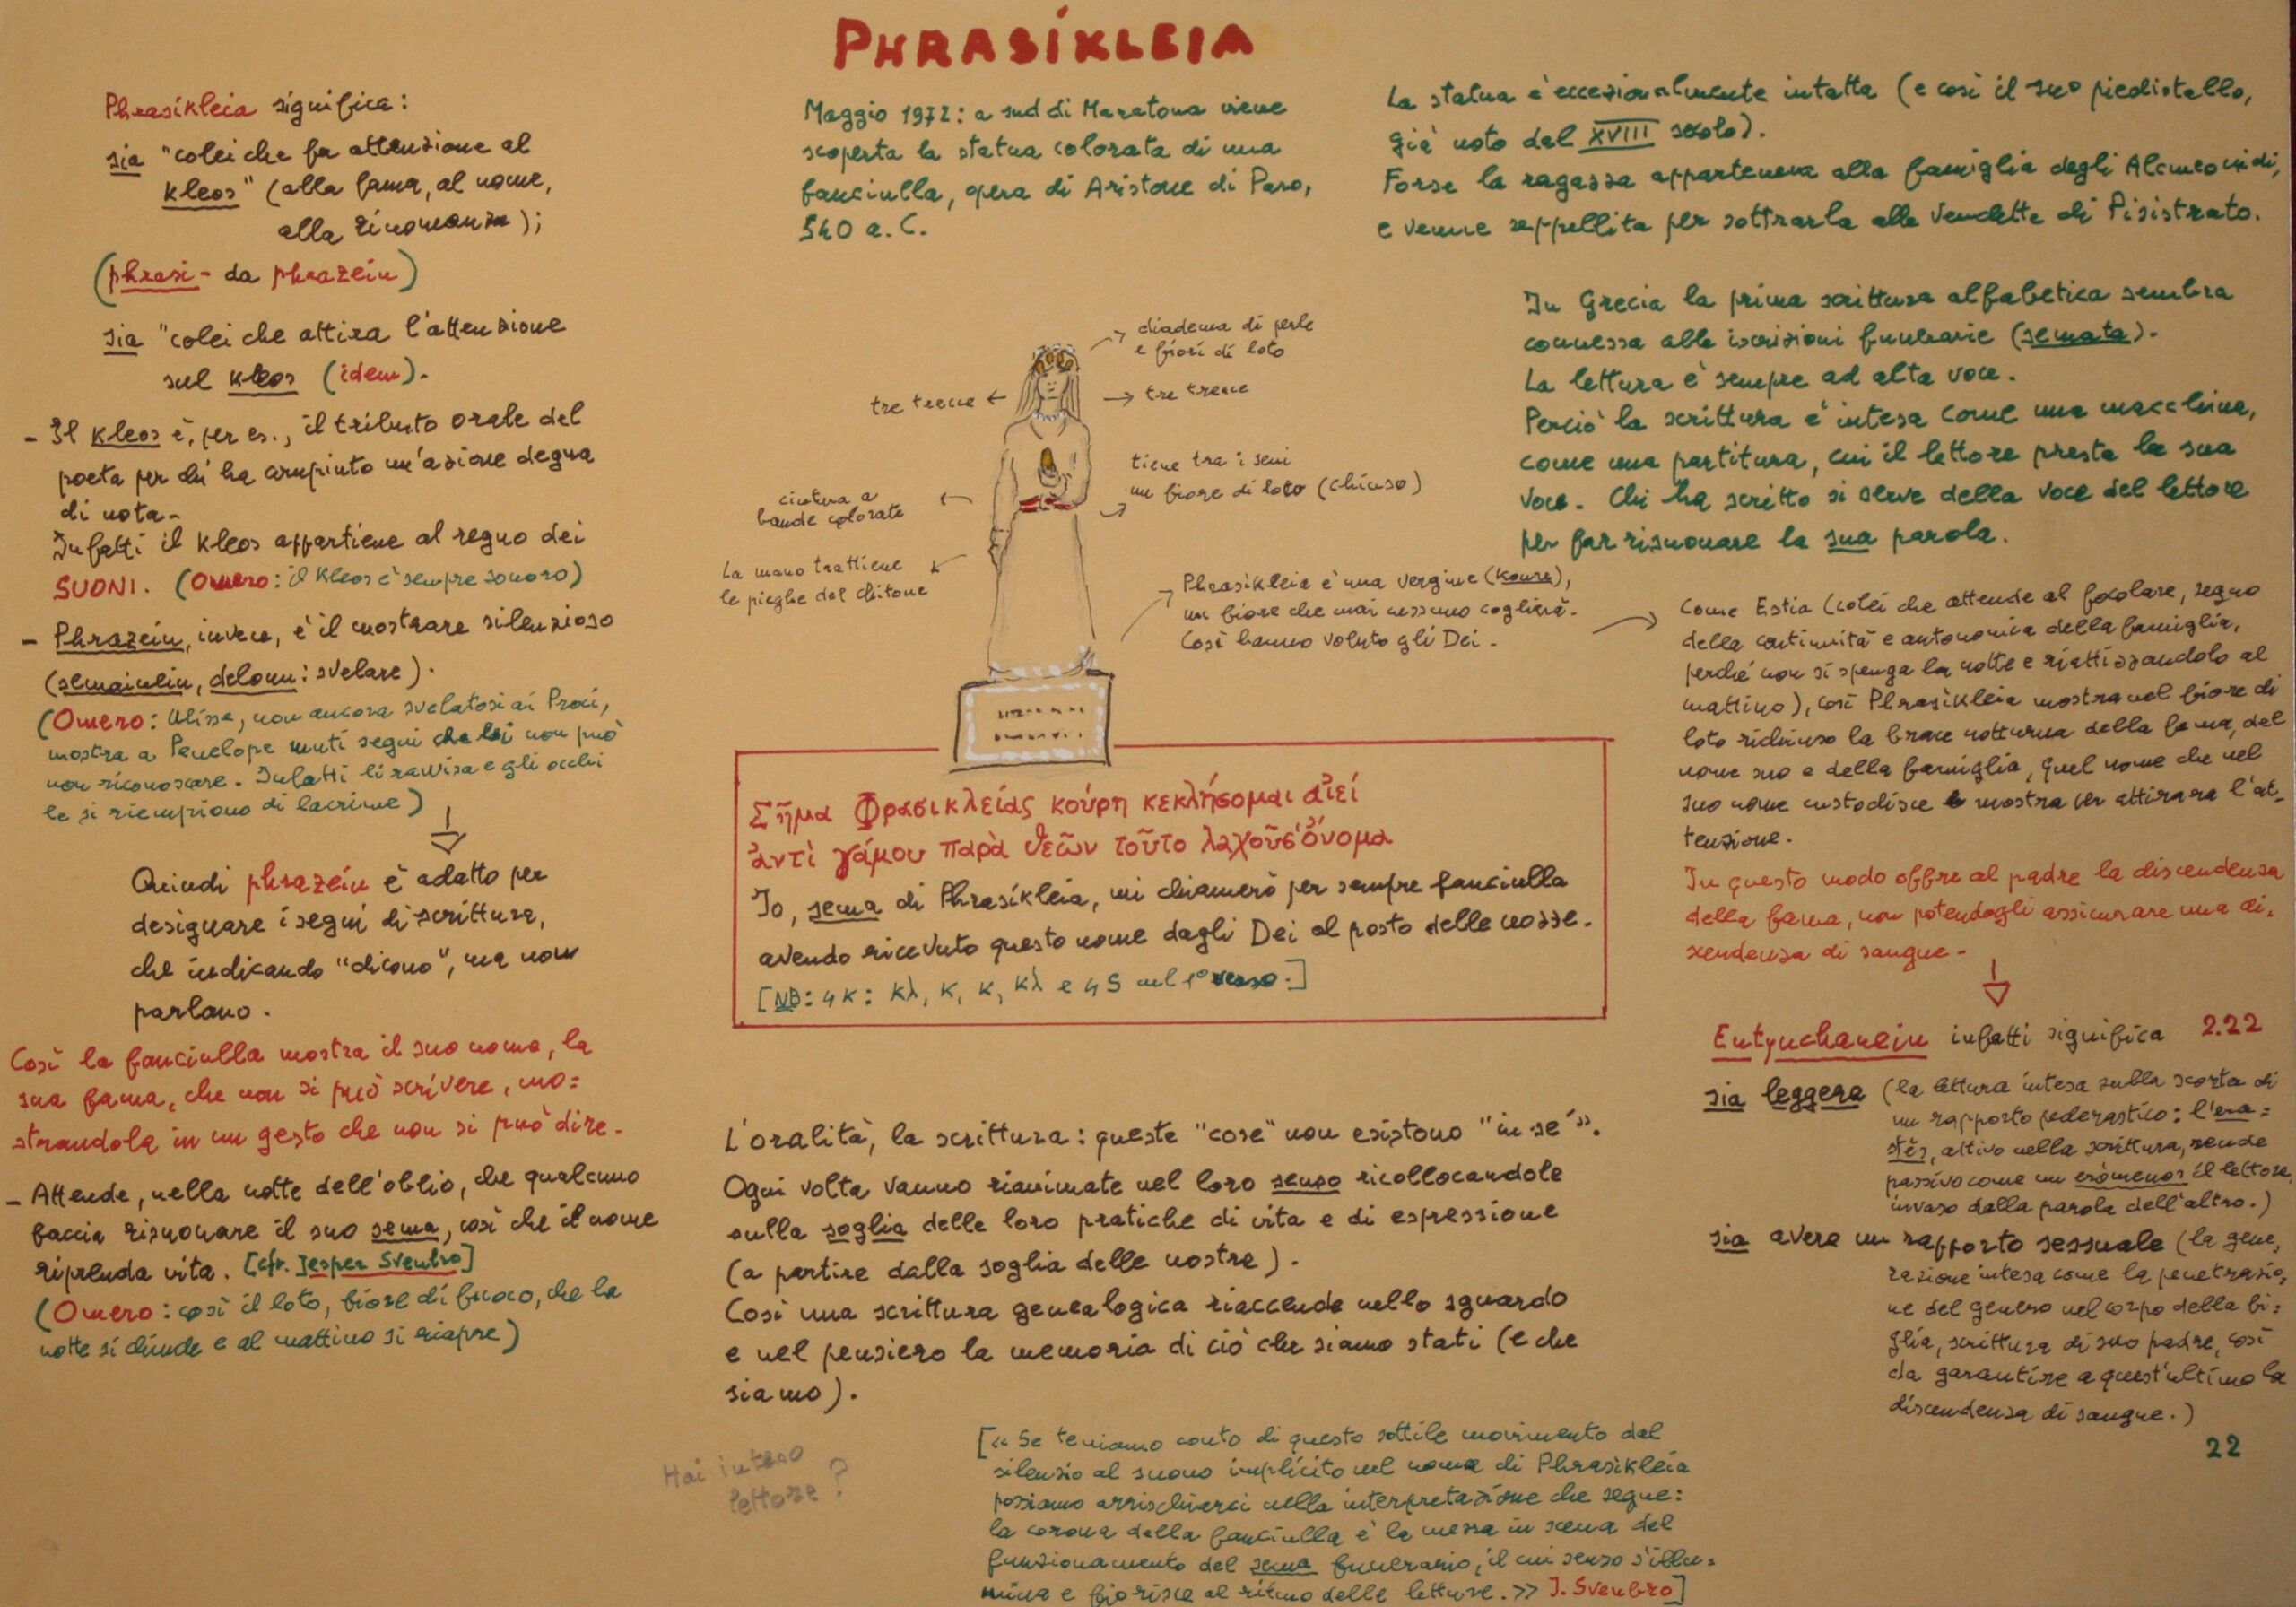 PHRASÍKLEIA
Phrasíkleia significa:
sia "colei che fa attenzione al
kleos" (alla fama, al nome,
alla rinomanza);
(phrasi- da phrazein)
sia "colei che attira l'attenzione
sul kleos (idem).
- Il kleos è, per es., il tributo orale del
poeta per chi ha compiuto un'azione degna
di nota-
Infatti il kleos appartiene al regno dei
SUONI. (Omero: il kleos è sempre sonoro)
- Phrazein, invece, è il mostrare silenzioso
(semainein, deloun: svelare).
(Omero: Ulisse, non ancora svelatosi ai Proci,
mostra a Penelope muti segni che lei non può
non riconoscere. Infatti li ravvisa e gli occhi
le si riempiono di lacrime)
Quindi phrazein è adatto per
designare i segni di scrittura,
che indicando "dicono", ma non
parlano.
Così la fanciulla mostra il suo nome, la
sua fama, che non si può scrivere, mo=
strandola in un gesto che non si può dire-
- Attende, nella notte dell'oblio, che qualcuno
faccia risuonare il suo sema, così che il nome
riprenda vita. [cfr. Jesper Svenbro]
(Omero: così il loto, fiore di fuoco, che la
notte si chiude e al mattino si riapre)
Maggio 1972: a sud di Maratona viene
scoperta la statua colorata di una
fanciulla, opera di Aristone di Paro,
540 a.C.
diadema di perle
e fiori di loto
tre trecce
tre trecce
tiene tra i seni
un fiore di loto (chiuso)
cintura a
bande colorate
La mano trattiene
le pieghe del chitone
Phrasíkleia è una vergine (koure),
un fiore che mai nessuno coglierà-
Così hanno voluto gli Dei.
Σῆμα Φρασικλείας κούρη κεκλήσομαι αἰεί
ἀντὶ γάμου παρὰ θεῶν τοῦτο λαχοῦσ' ὄνομα
Io, sema di Phrasíkleia, mi chiamerò per sempre fanciulla
avendo ricevuto questo nome dagli Dei al posto delle nozze.
[NB: 4 κ: κλ, κ, κ, κλ e 4 S nel 1° verso.]
L'oralità, la scrittura: queste "cose" non esistono "in sé".
Ogni volta vanno rianimate nel loro senso ricollocandole
sulla soglia delle loro pratiche di vita e di espressione
(a partire dalla soglia delle nostre).
Così una scrittura genealogica riaccende nello sguardo
e nel pensiero la memoria di ciò che siamo stati (e che
siamo).
Hai inteso
lettore?
[«Se teniamo conto di questo sottile movimento dal
silenzio al suono implicito nel nome di Phrasikleia
possiamo arrischiarci nella interpretazione che segue:
la corona della fanciulla è la messa in scena del
funzionamento del sema funerario, il cui senso s'illu=
mina e fiorisce al ritmo delle letture.» J. Svenbro]
La statua è eccezionalmente intatta (e così il suo piedistallo,
già noto dal XVIII secolo).
Forse la ragazza apparteneva alla famiglia degli Alcmeonidi,
e venne seppellita per sottrarla alle vendette di Pisistrato.
In Grecia la prima scrittura alfabetica sembra
connessa alle iscrizioni funerarie (semata).
La lettura è sempre ad alta voce.
Perciò la scrittura è intesa come una macchina,
come una partitura, cui il lettore presta la sua
voce. Chi ha scritto si serve della voce del lettore
per far risuonare la sua parola.
Come Estia (colei che attende al focolare, segno
della continuità e autonomia della famiglia,
perché non si spenga la notte e riattizzandolo al
mattino), così Phrasíkleia mostra nel fiore di
loto richiuso la brace notturna della fama, del
nome suo e della famiglia, quel nome che nel
suo nome custodisce e mostra per attirare l'at-
tenzione.
In questo modo offre al padre la discendenza
della fama, non potendogli assicurare una di-
scendenza di sangue-
Entynchanein infatti significa 2.22
sia leggere (la lettura intesa sulla scorta di
un rapporto pederastico: l'era=
stès, attivo nella scrittura, rende
passivo come un eròmenos il lettore,
invaso dalla parola dell'altro.)
sia avere un rapporto sessuale (la gene,
razione intesa come la penetrazio,
ne del genero nel corpo della fi=
glia, scrittura di suo padre, così
da garantire a quest'ultimo la
discendenza di sangue.)
22